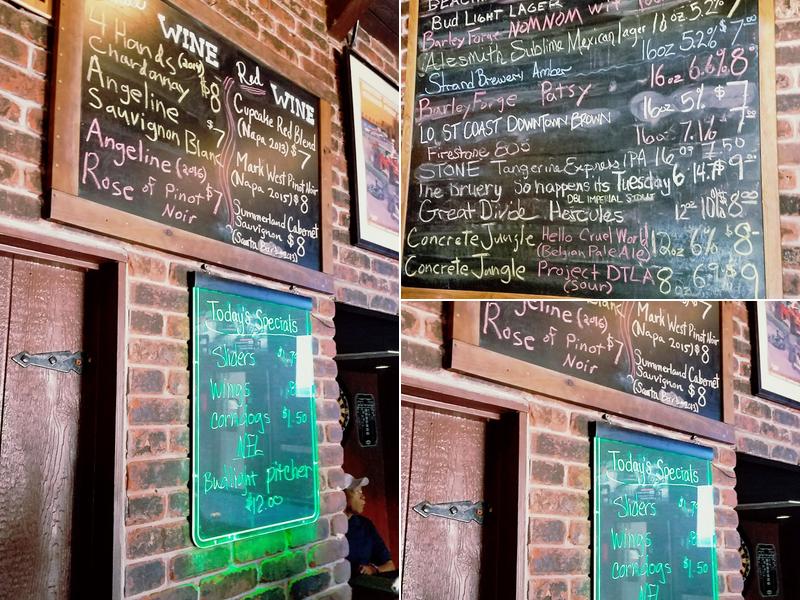 WINE
4 Hands (2014)
Chardonnay $8
Angeline
Sauvignon Blanc $7
Angeline (2016)
Rose of Pinot $7
Noir
Red
WINE
Cupcake Red Blend
(Napa 2013) $7
Mark West Pinot Noir
(Napa 2015) $8
Summerland Cabernet
Sauvignon $8
(Santa Barbara)
Today's Specials
Sliders
Wings
Corndogs $1.50
NFL
Budlight pitcher
$12.00
Bud Light LAGER
Barley Forge NOM NOM WIT
Alesmith Sublime Mexican Lager 16oz 5.2%
Strand Brewery Amber 16oz 5.2% $7
Barley Forge Patsy 16oz 6.6% 8
LOST COAST DOWNTOWN BROWN 16oz 5% $7
Firestone 805
STONE Tangerine Express IPA
The Bruery So happens its Tuesday
DBL IMPERIAL STOUT
Great Divide Hercules 12oz 10%
Concrete Jungle Hello Cruel World 12oz 6% $8
(Belgian Pale Ale)
Concrete Jungle Project DTLA 8oz 6.9% $9
(Sour)
Angeline (2016)
Rose of Pinot $7
Noir
Mark West Pinot Noir
(Napa 2015) $8
Summerland Cabernet
Sauvignon $8
(Santa Barbara)
Today's Specials
Sliders
Wings
Corndogs $1.50
NFL